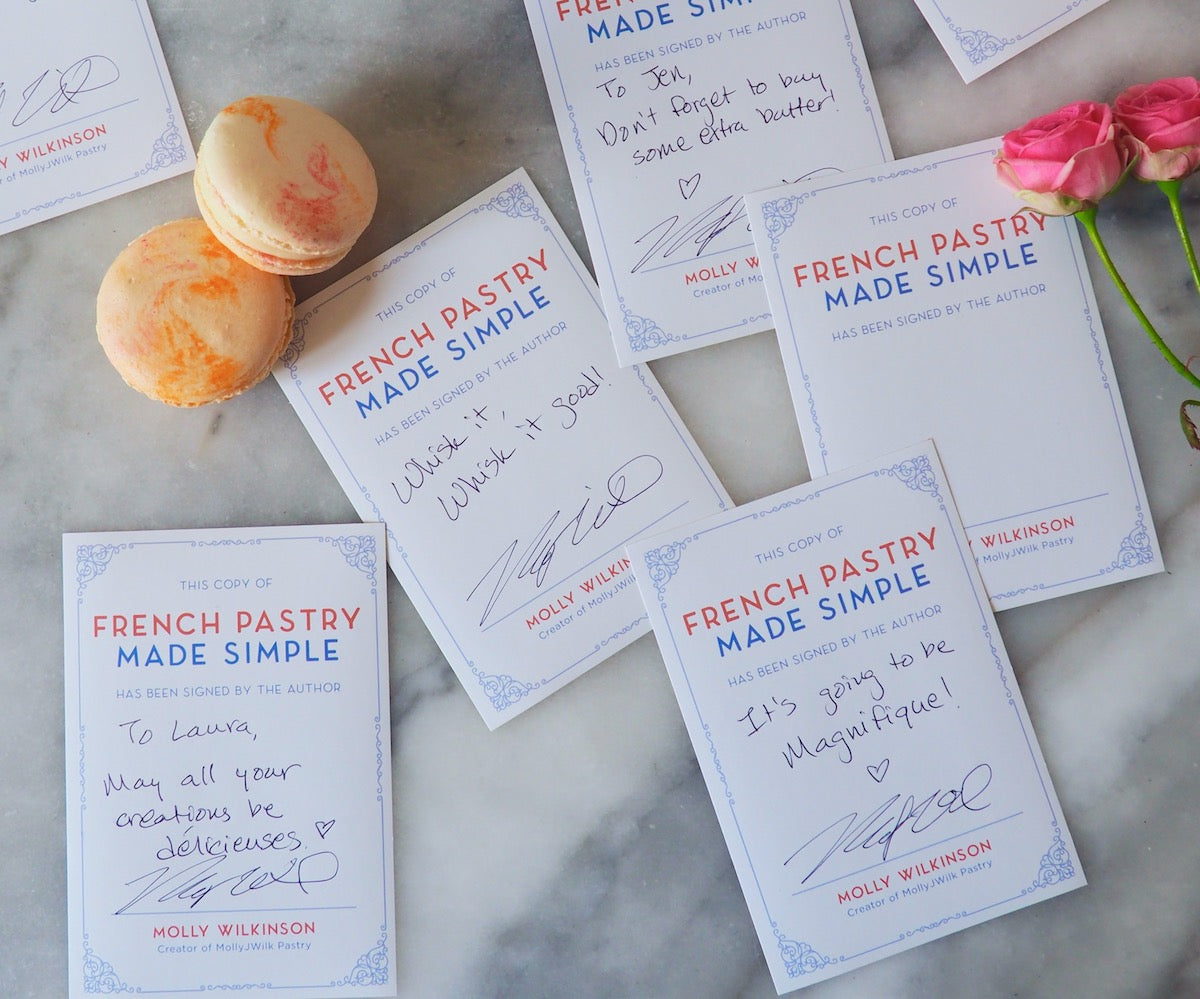 Y WILKINSON
or of MollyJWilk Pastry
FRENCH PASTRY
MADE SIMPLE
HAS BEEN SIGNED BY THE AUTHOR
To Jen,
Don't forget to buy
some extra butter!
♡
MOLLY W
Creator of Mo
THIS COPY OF
FRENCH PASTRY
MADE SIMPLE
HAS BEEN SIGNED BY THE AUTHOR
Y WILKINSON
MollyJWilk Pastry
THIS COPY OF
FRENCH PASTRY
MADE SIMPLE
HAS BEEN SIGNED BY THE AUTHOR
Whisk it,
Whisk it good!
MOLLY WILKIN
Creator of MollyJWil
THIS COPY OF
FRENCH PASTRY
MADE SIMPLE
HAS BEEN SIGNED BY THE AUTHOR
To Laura,
May all your
creations be
délicieuses. ♡
MOLLY WILKINSON
Creator of MollyJWilk Pastry
THIS COPY OF
FRENCH PASTRY
MADE SIMPLE
HAS BEEN SIGNED BY THE AUTHOR
It's going to be
Magnifique!
♡
MOLLY WILKINSON
Creator of MollyJWilk Pastry